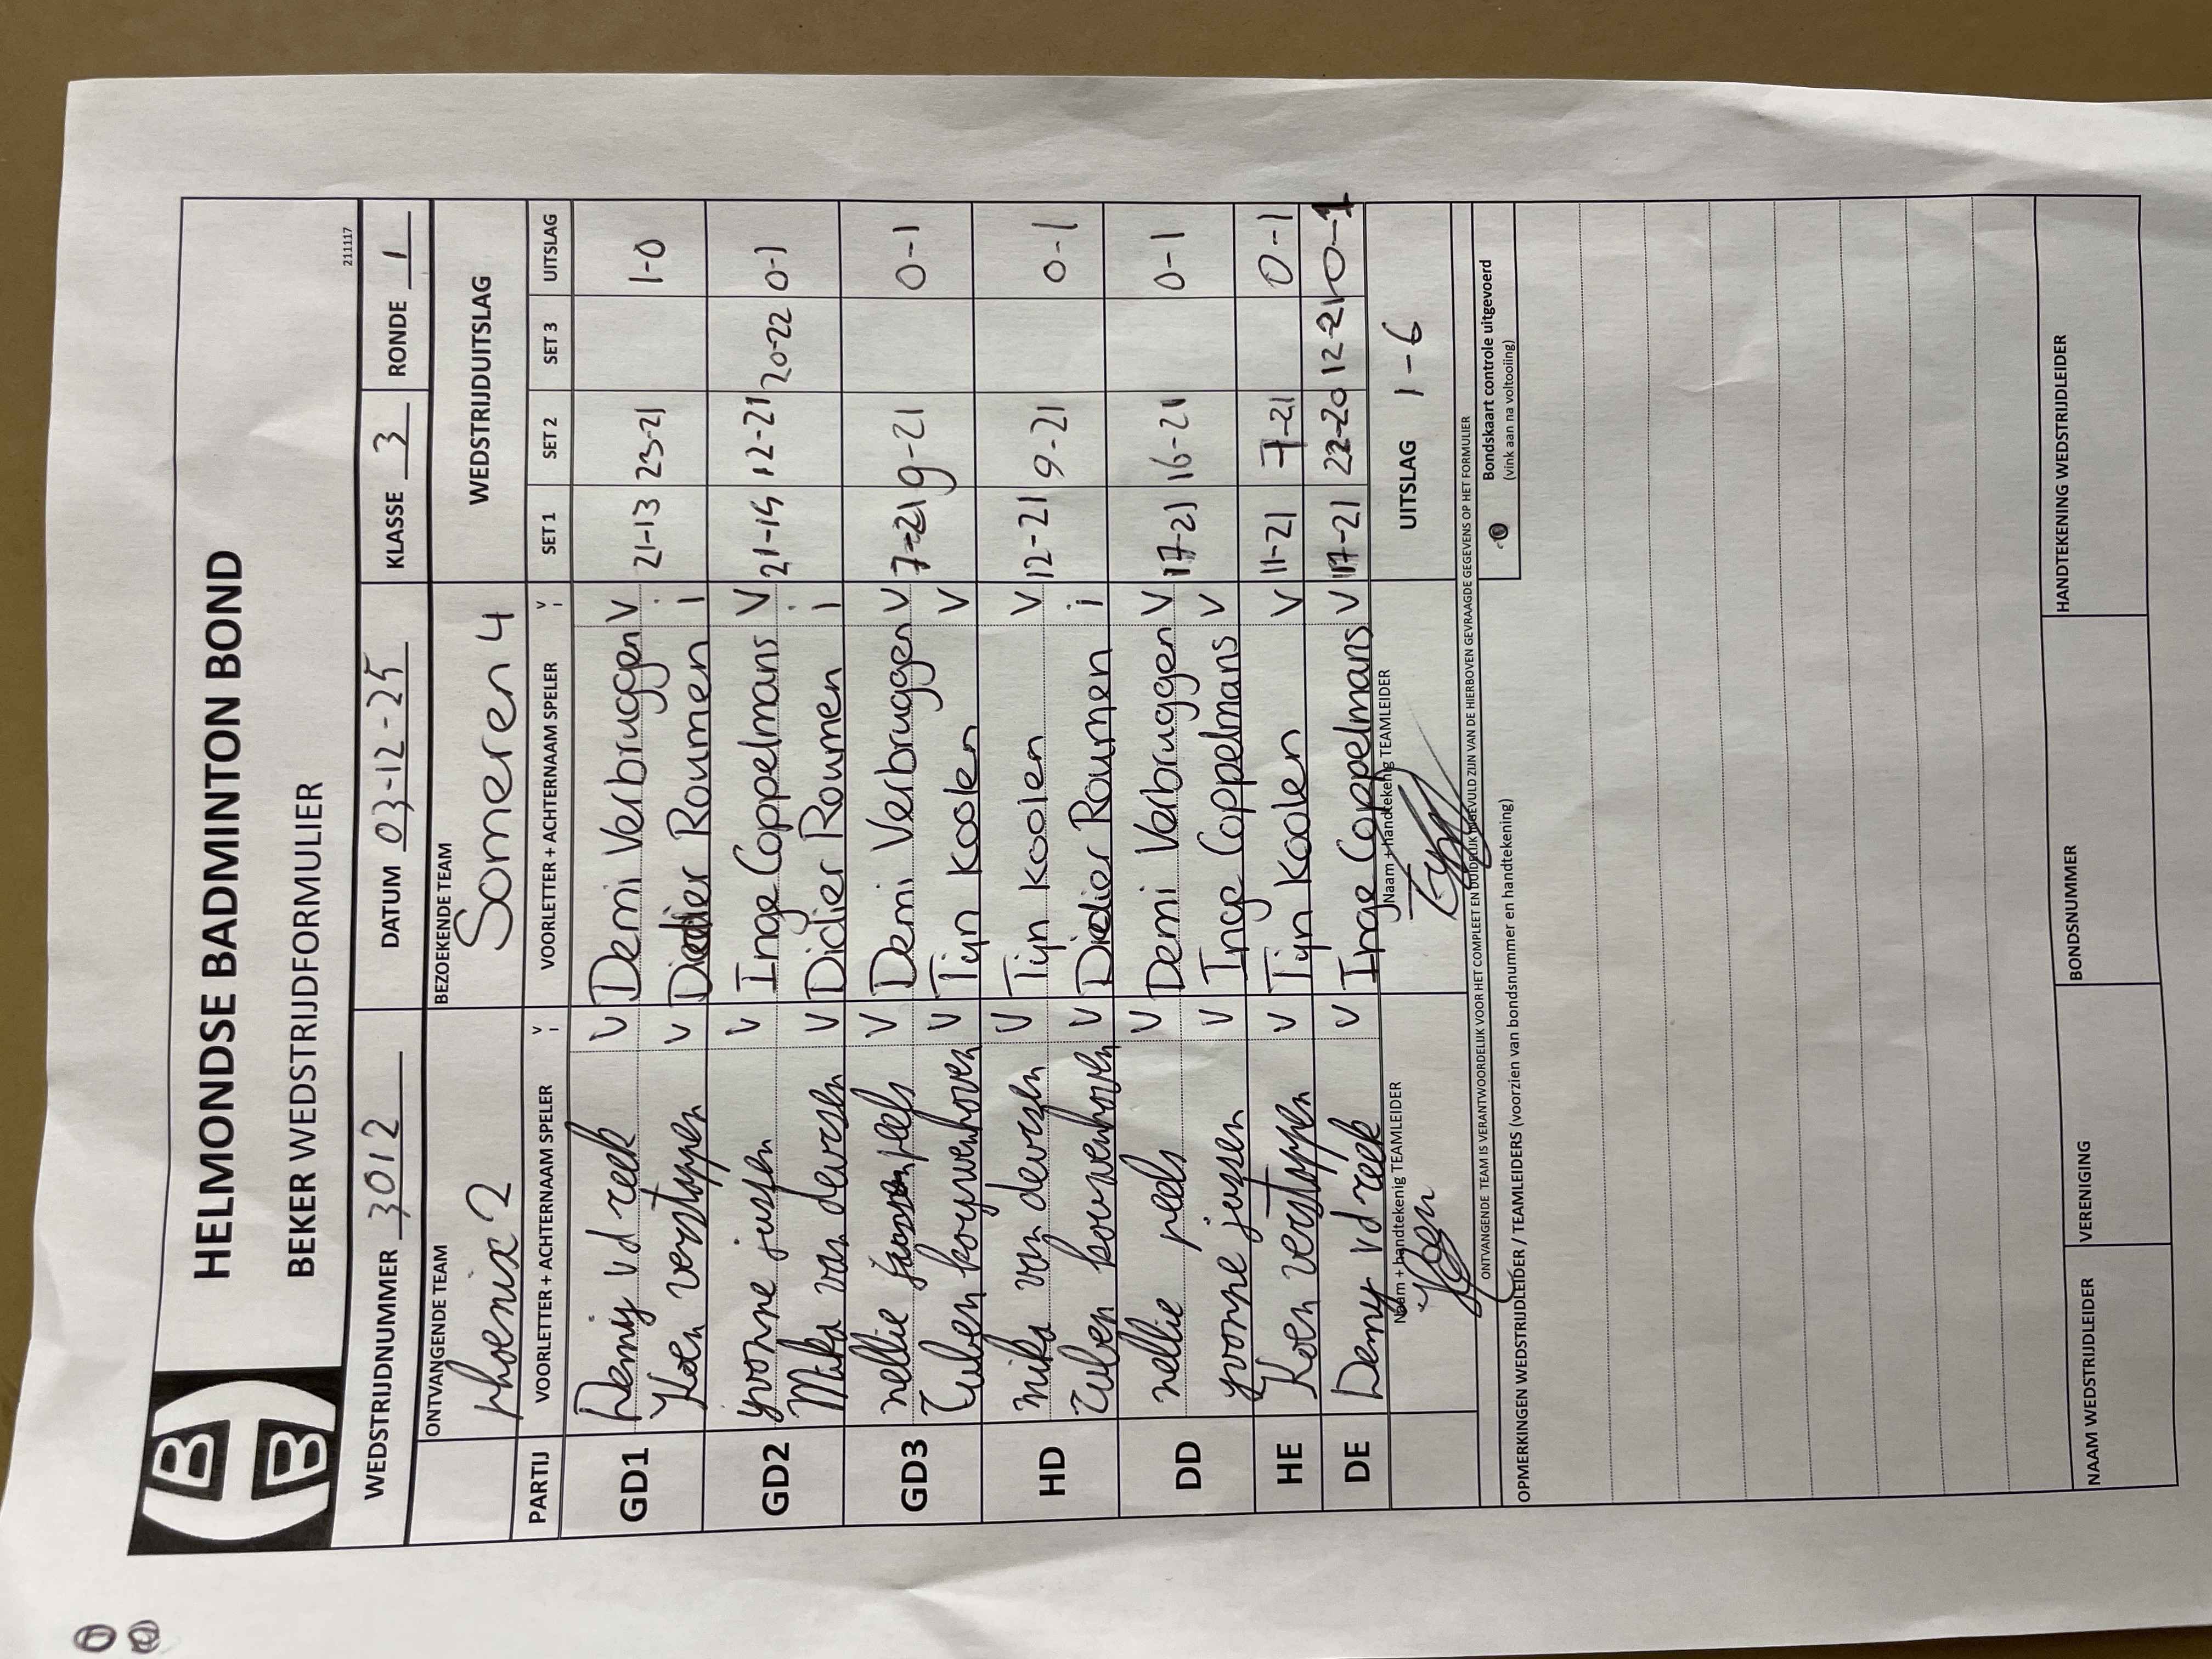 HELMONDSE BADMINTON BOND
BEKER WEDSTRIJDFORMULIER
211117
WEDSTRIJDNUMMER 3012 DATUM 03-12-25 KLASSE 3 RONDE 1
ONTVANGENDE TEAM BEZOEKENDE TEAM WEDSTRIJDUITSLAG
phoenix 2 Someren 4
PARTIJ VOORLETTER + ACHTERNAAM SPELER V i VOORLETTER + ACHTERNAAM SPELER V i SET 1 SET 2 SET 3 UITSLAG
GD1 Demy vd reek V Demi Verbruggen V 21-13 23-21 1-0
Koen verstappen V Didier Roumen i
GD2 yvonne jussen V Inge Coppelmans V 21-15 12-21 20-22 0-1
Mika van deursen V Didier Roumen i
GD3 nellie peels V Demi Verbruggen V 7-21 9-21 0-1
Tuben kouwenhoven V Tijn Koolen V
HD mika van deursen V Tijn Koolen V 12-21 9-21 0-1
Tuben kouwenhoven V Didier Roumen i
DD nellie peels V Demi Verbruggen V 17-21 16-21 0-1
yvonne jussen V Inge Coppelmans V
HE Koen verstappen V Tijn Koolen V 11-21 7-21 0-1
DE Demy vd reek V Inge Coppelmans V 17-21 22-20 12-21 0-1
Naam + handtekenig TEAMLEIDER Naam + handtekenig TEAMLEIDER UITSLAG 1-6
Koen
ONTVANGENDE TEAM IS VERANTWOORDELIJK VOOR HET COMPLEET EN DUIDELIJK INGEVULD ZIJN VAN DE HIERBOVEN GEVRAAGDE GEGEVENS OP HET FORMULIER
Bondskaart controle uitgevoerd
(vink aan na voltooiing)
OPMERKINGEN WEDSTRIJDLEIDER / TEAMLEIDERS (voorzien van bondsnummer en handtekening)
NAAM WEDSTRIJDLEIDER VERENIGING BONDSNUMMER HANDTEKENING WEDSTRIJDLEIDER